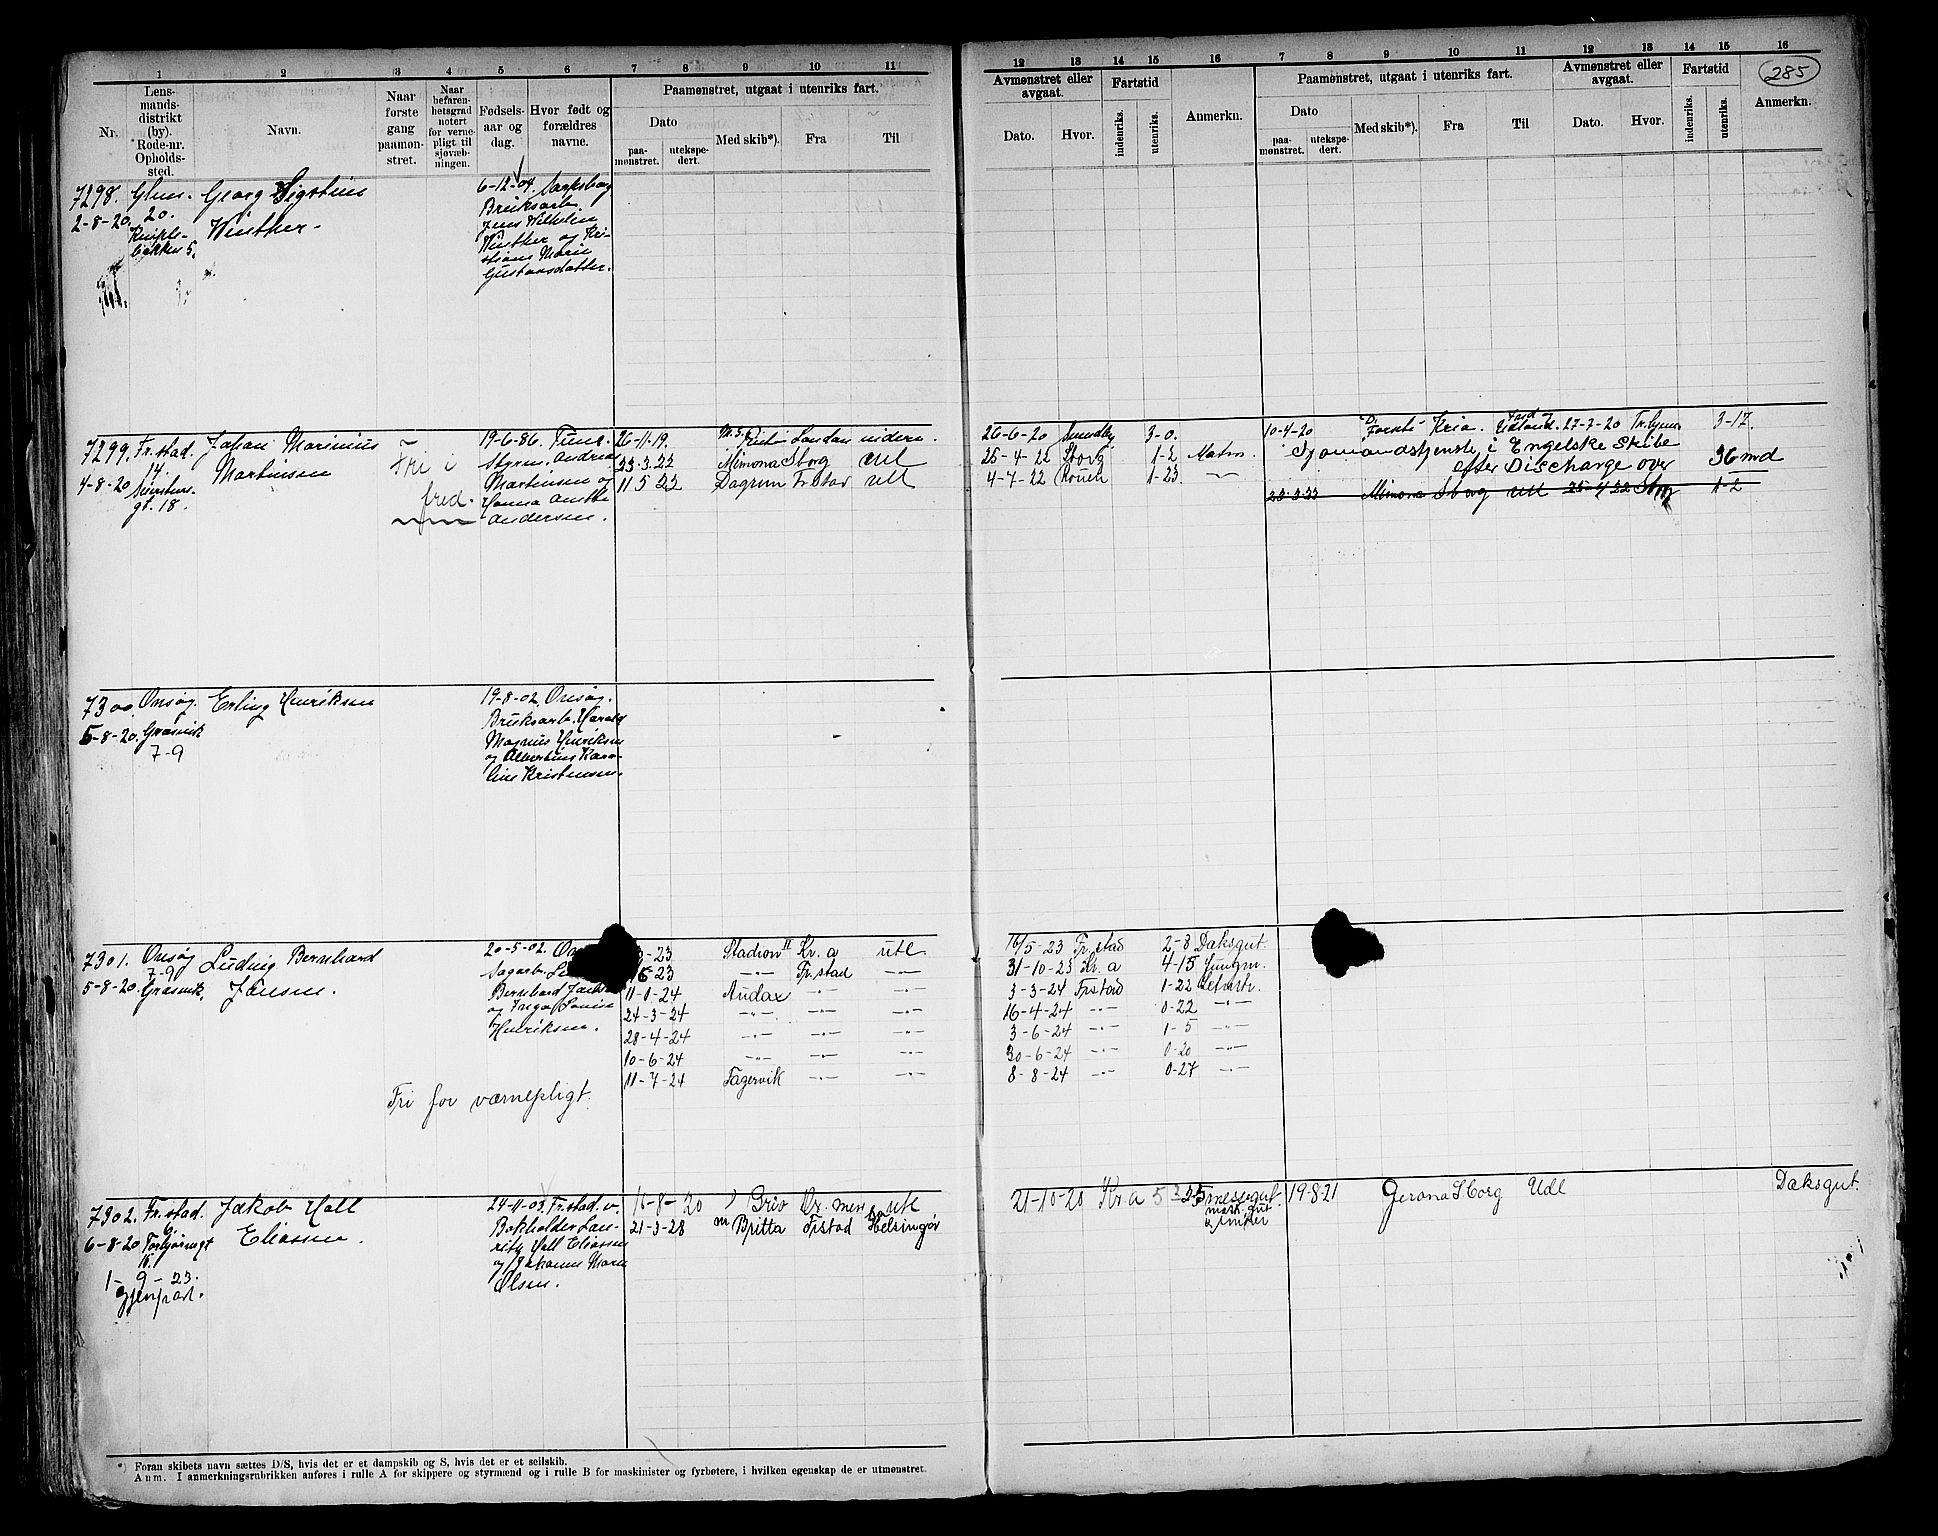 1 2 3 4 5 6 7 8 9 10 11
Nr.
Lens-
mands-
distrikt
(by).
Rode-nr.
Opholds-
sted.
Navn.
Naar
første
gang
paamøn-
stret.
Naar
befaren-
hetsgrad
notert
for verne-
pligt til
sjøvæb-
ningen.
Fødsels-
aar og
dag.
Hvor født og
forældres
navne.
Paamønstret, utgaat i utenriks fart.
Dato
paa-
mønstret.
utekspe-
dert.
Med skib*).
Fra
Til
7298. Georg
2-8-20. 20.
Winther
6-12-04.
Bruksarb.
Jens Vilhelm
Winther og Kri-
stiane Marie
Gustavsdatter.
7299. Fr.stad. Johan Marinius
14. Martinsen
4-8-20
gt. 18.
Fri i
fred.
19-6-86. Tune.
Styrm. Andreas
Martinsen og
Hanna
Andersen.
26-11-19. London videre.
23.3.22 Mimona Sborg Utl
11.5.22 Dagrun Fr.stad Utl
7300. Onsøy. Erling Henriksen
5-8-20. Græsvik
7-9
19-8-02. Onsøy.
Bruksarb. Harald
Magnus Henriksen
og Albertine Karo-
line Kristensen.
7301. Onsøy Ludvig Bernhard
7-9
5-8-20. Græsvik. Jensen.
20-5-02.
Sagarb.
Bernhard
og Inga Lovise
Henriksen.
Fri for værnepligt.
-23 Stadion II Kr.a utl.
23 -"- Fr.stad -"-
11-1-24 Audax -"- -"-
24-3-24 -"- -"- -"-
28-4-24 -"- -"- -"-
10-6-24 -"- -"- -"-
11-7-24 Fagervik -"- -"-
7302. Fr.stad. Jakob Hall
6.
6-8-20 Eliassen.
1-9-23.
gjenpart.
24-11-02. Fr.stad.
Bokholder Lau-
ritz Hall Eliassen
og Johanne Marie
Olsen.
16-8-20 Griv utl
21-3-28 m Britta Frstad Helsingør
*) Foran skibets navn sættes D/S, hvis det er et dampskib og S, hvis det er et seilskib.
Anm. I anmerkningsrubrikken anføres i rulle A for skippere og styrmænd og i rulle B for maskinister og fyrbøtere, i hvilken egenskap de er utmønstret.
12 13 14 15 16 7 8 9 10 11 12 13 14 15 16
285
Avmønstret eller
avgaat.
Dato.
Hvor.
Fartstid
indenriks.
utenriks.
Anmerkn.
Paamønstret, utgaat i utenriks fart.
Dato
paa-
mønstret.
utekspe-
dert.
Med skib*).
Fra
Til
Avmønstret eller
avgaat.
Dato.
Hvor.
Fartstid
indenriks.
utenriks.
Anmerkn.
26-6-20 3-0. 10-4-20 Kria. 27-7-20 3-17.
25-4-22 Sborg 1-2 Matrs. Sjømandstjeneste i Engelske Skibe
4-7-22 Rouen 1-23. -"- efter Discharge over 36 md
23.3.22 Mimona Sborg Utl 25-4 22 Sborg 1-2
16/5-23 Fr.stad 2-8 Dæksgut.
31-10-23 Kr.a 4-15 Jungm.
3-3-24 Frstad 1-22 Letmatr.
16-4-24 -"- 0-22 -"-
3-6-24 -"- 1-5 -"-
30-6-24 -"- 0-20 -"-
8-8-24 -"- 0-27 -"-
21-10-20 Kr.a messegut 19-8-21 Gerona Sborg Udl Dæksgut.